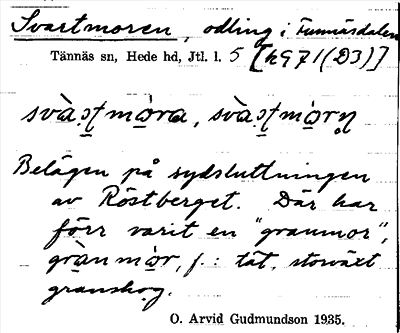 Svartmoren, odling i Funnäsdalen
Tännäs sn, Hede hd, Jtl. l. 5 [h971(D3)]
svàṣṭmòra, svàṣṭmòrn̥
Belägen på sydsluttningen
av Röstberget. Där har
förr varit en "granmor",
grànmòr, f.: tät, storväxt
granskog.
O. Arvid Gudmundson 1935.